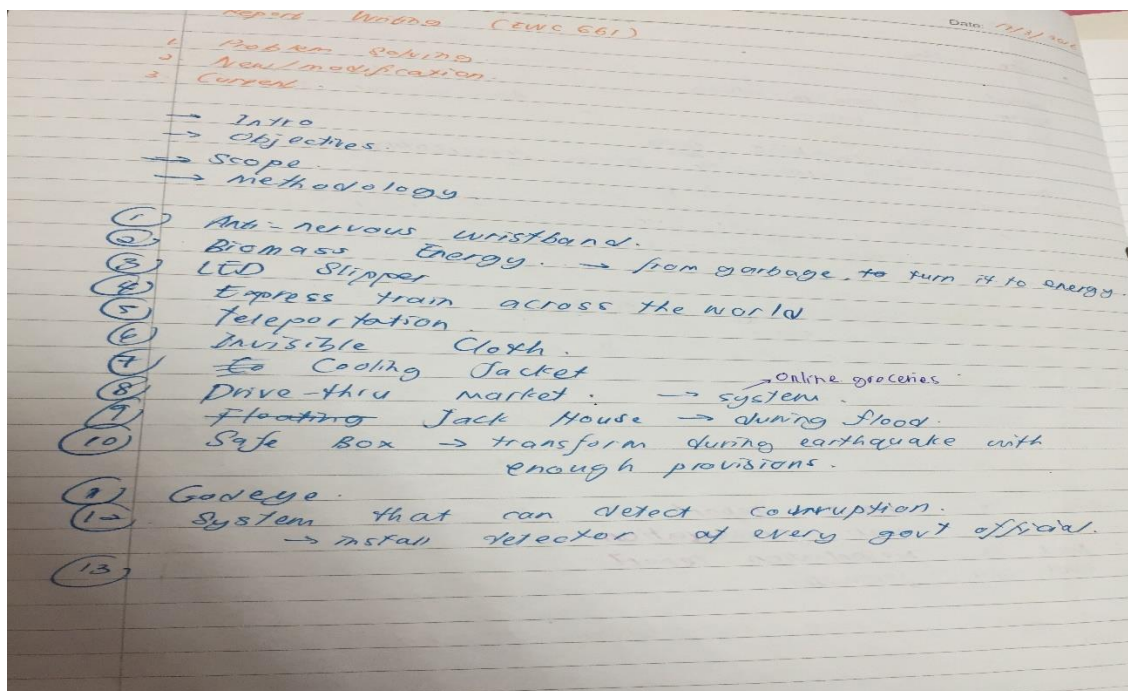 Report Writing (EWC 661)
Date:
1. Problem Solving
2. New/modification.
3 Current.
→ Intro
→ Objectives
→ Scope.
→ Methodology
1 Anti-nervous wristband.
2 Biomass Energy. → from garbage, to turn it to energy.
3 LED Slipper
4 Express train across the world
5 Teleportation
6 Invisible Cloth.
7 Cooling Jacket
→ Online groceries
8 Drive-thru market. → system.
9 Floating Jack House → during flood.
10 Safe Box → transform during earthquake with
enough provisions.
11 Godeye.
12 System that can detect courruption.
→ install detector at every gov't official.
13